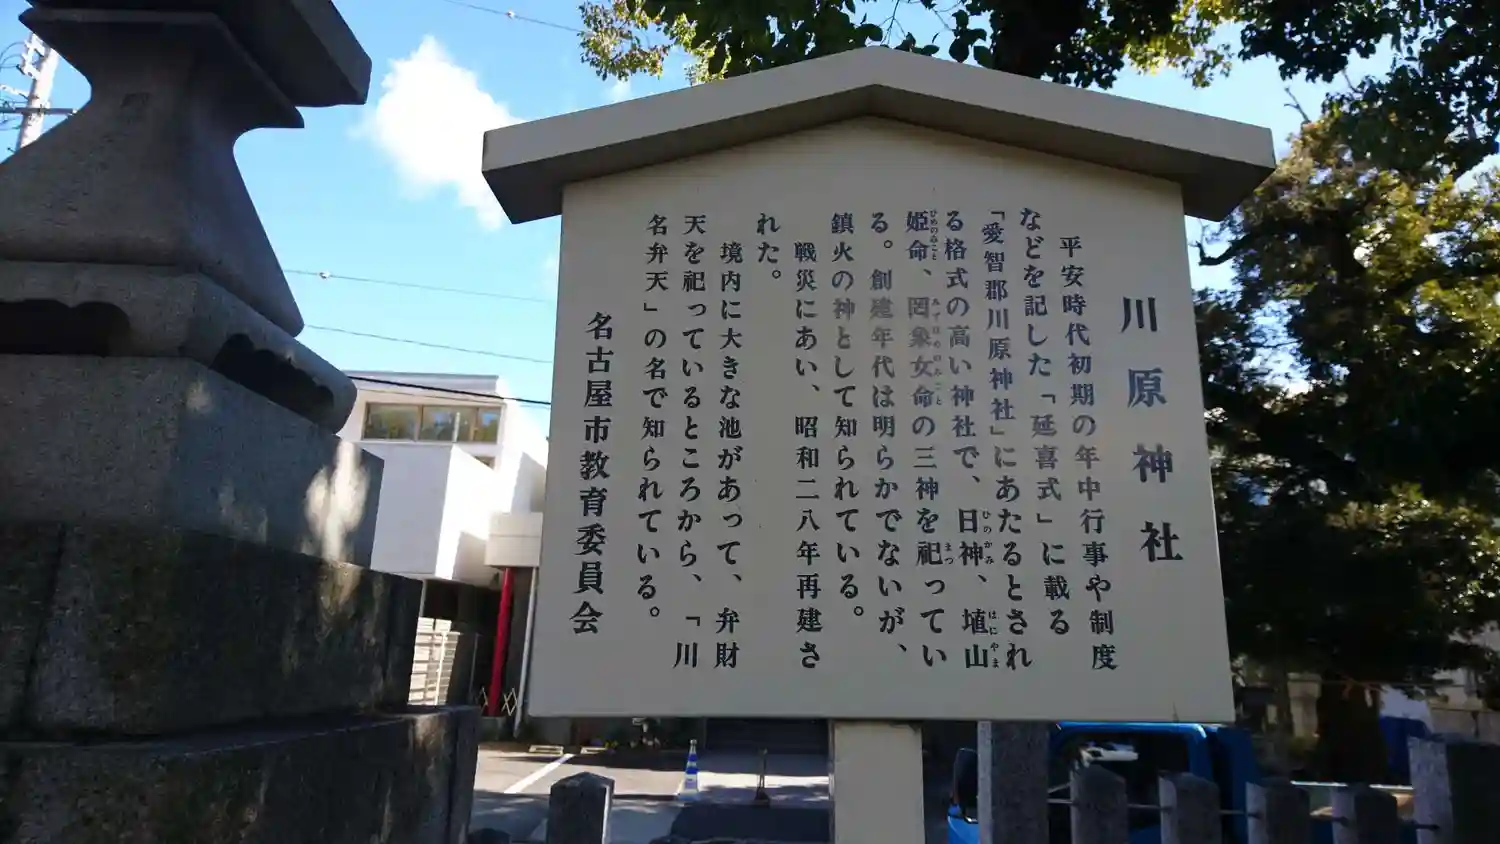 川原神社
平安時代初期の年中行事や制度
などを記した「延喜式」に載る
「愛智郡川原神社」にあたるとされ
る格式の高い神社で、日神、埴山
姫命、罔象女命の三神を祀ってい
る。創建年代は明らかでないが、
鎮火の神として知られている。
戦災にあい、昭和二八年再建さ
れた。
境内に大きな池があって、弁財
天を祀っているところから、「川
名弁天」の名で知られている。
名古屋市教育委員会